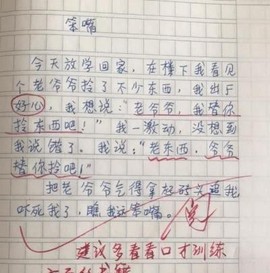 笨嘴
今天放学回家，在楼下我看见
个老爷爷拎了不少东西，我出于
好心，我想说："老爷爷，我替你
拎东西吧！"我一激动，没想到
我说错了。我说："老东西，爷爷
替你拎吧！"
把老爷爷气得拿起
吓死我了，瞧我这笨嘴。
阅
建议多看看口才训练